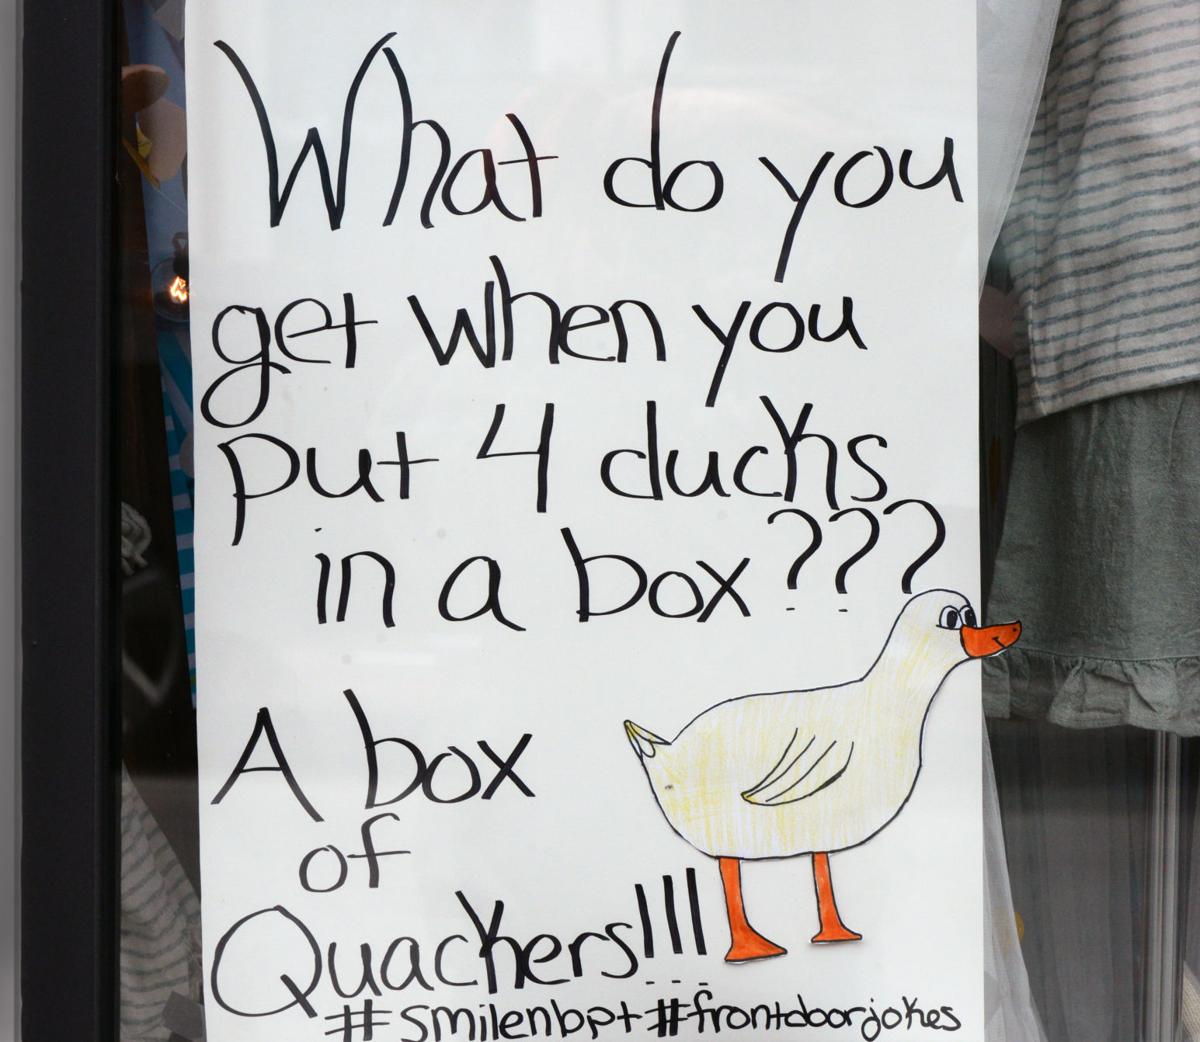 What do you
get when you
put 4 ducks
in a box???
A box
of
Quackers!!!
#smilenbpt #frontdoorjokes